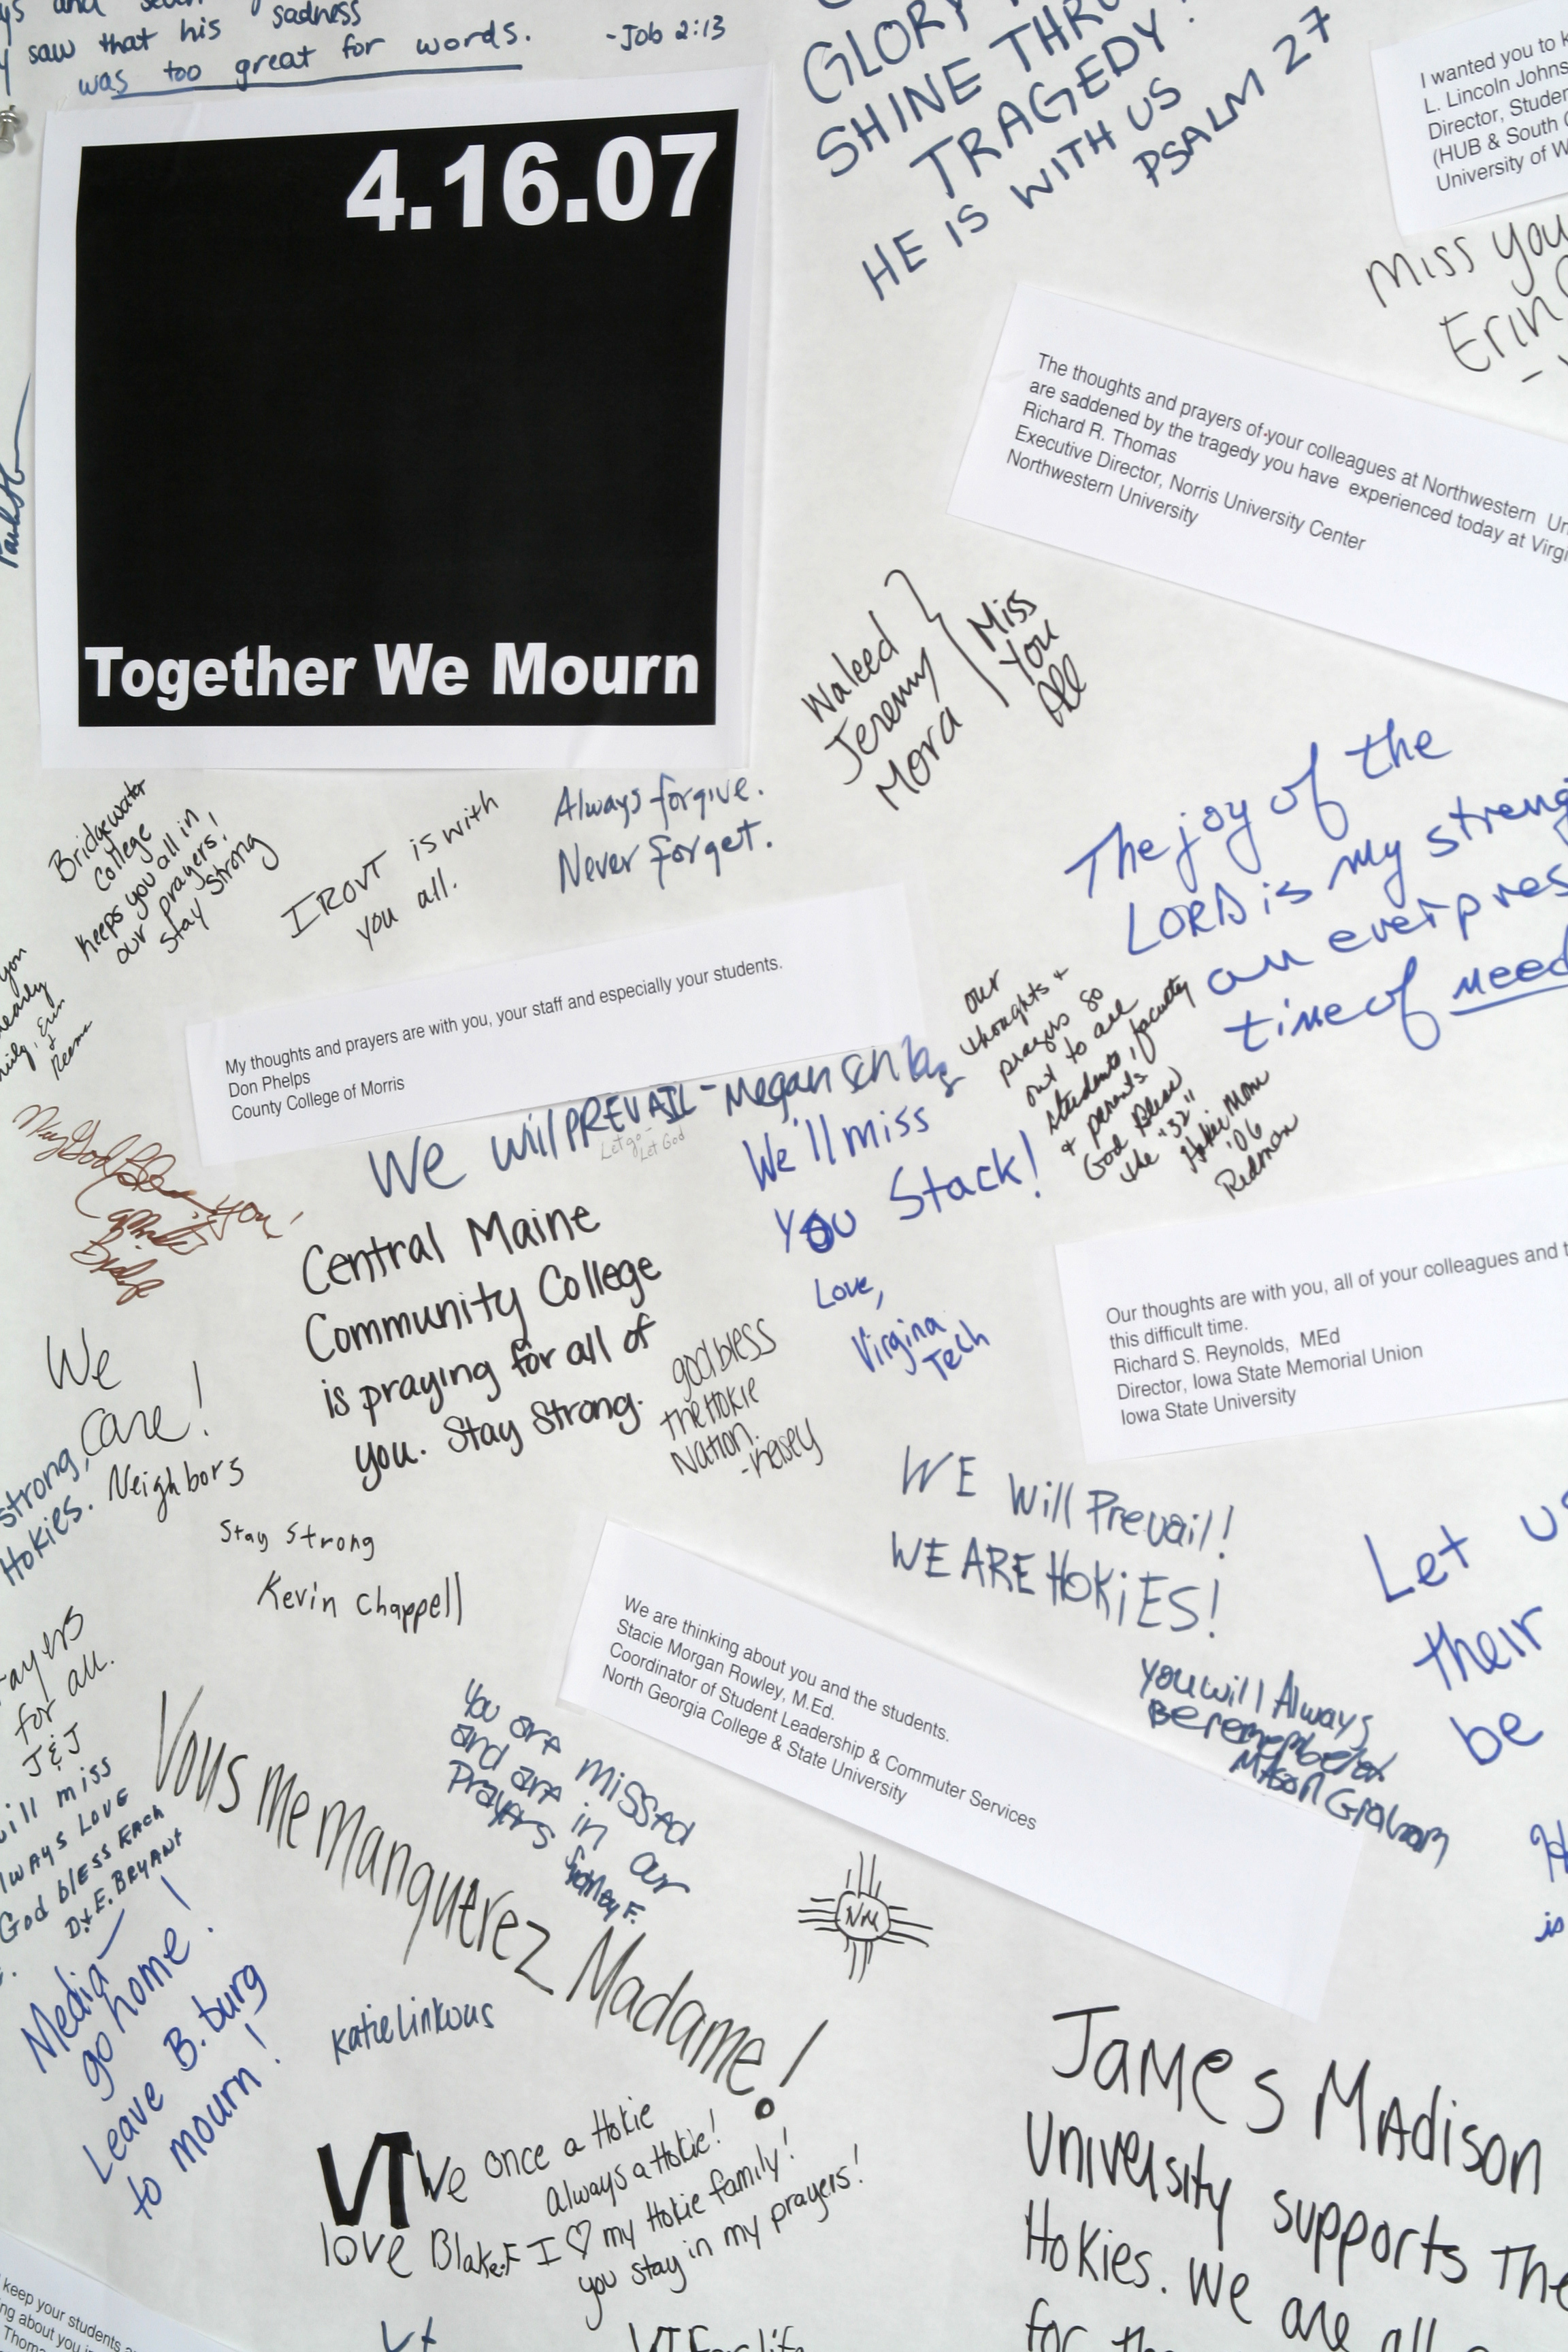 saw that his sadness
was too great for words. -Job 2:13
4.16.07
Together We Mourn
GLORY
SHINE THR
TRAGEDY!
HE IS WITH US
PSALM 27
I wanted you to k
L. Lincoln Johns
Director, Studen
(HUB & South
University of W
Miss you
Erin
The thoughts and prayers of your colleagues at Northwestern Un
are saddened by the tragedy you have experienced today at Virgi
Richard R. Thomas
Executive Director, Norris University Center
Northwestern University
Waleed
Jeremy
Mora
Miss
You
All
The joy of the
LORD is my streng
an ever pres
time of need
Bridgewater
College
keeps you all in
our prayers!
Stay Strong
IROVT is with
you all.
Always forgive.
Never forget.
My thoughts and prayers are with you, your staff and especially your students.
Don Phelps
County College of Morris
We will PREVAIL - Megan
Let go -
Let God
our
thoughts +
prayers go
out to all
students, faculty
& parents
God Bless
the "32"
Hokie Mom
'06
Redman
We'll miss
you Stack!
Love,
Virgina
Tech
May God Bless you!
Central Maine
Community College
is praying for all of
you. Stay Strong.
god bless
the Hokie
Nation.
-Kelsey
Our thoughts are with you, all of your colleagues and t
this difficult time.
Richard S. Reynolds, MEd
Director, Iowa State Memorial Union
Iowa State University
We
Care!
Neighbors
strong,
Hokies.
Stay Strong
Kevin Chappell
WE Will Prevail!
WE ARE HOKiES!
Let us
their
be
We are thinking about you and the students.
Stacie Morgan Rowley, M.Ed.
Coordinator of Student Leadership & Commuter Services
North Georgia College & State University
You will Always
Be remembered
Mason Graham
ayers
for all.
J & J
ill miss
lways Love
God bless Each
D. & E. BRYANT
You are missed
and are in our
Prayers
Vous me manquerez Madame!
NM
Media
go home!
Leave B.burg
to mourn!
Katie Linkous
VT We once a Hokie
Always a Hokie!
love Blake.F I ♡ my Hokie family!
you stay in my prayers!
James Madison
University supports The
Hokies. We are all
for th
is
keep your students a
ng about you i
Thoma
VT For life